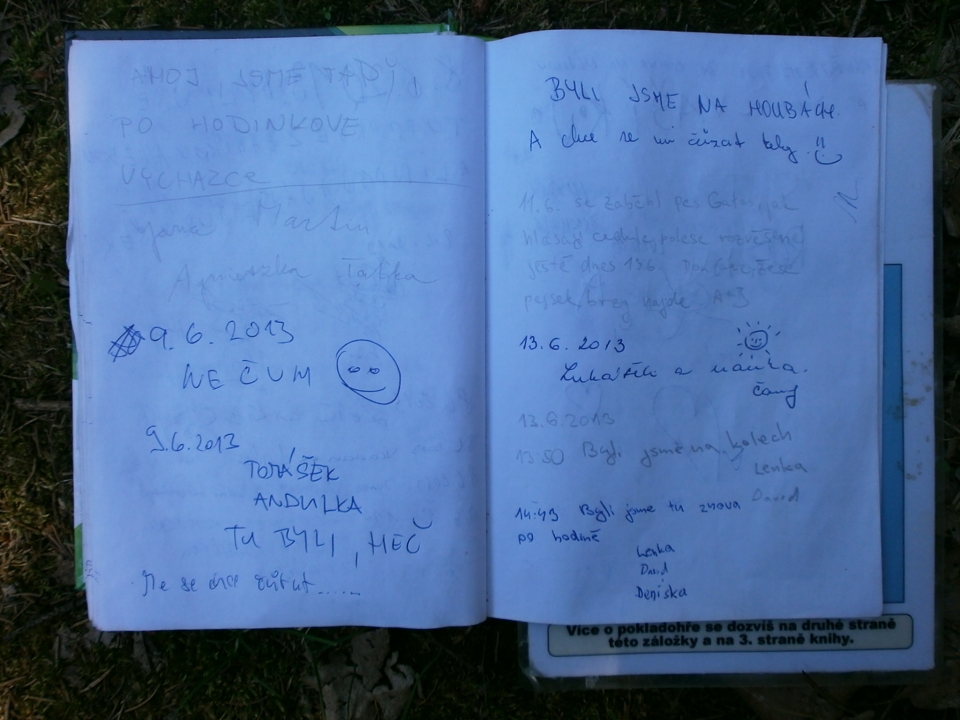 AHOJ, JSME TADY,
PO HODINKOVÉ
VYCHÁZCE
Jana Martin
Agnieszka
9.6.2013
NE ČUM
9.6.2013
TOMÁŠEK
ANDULKA
TU BYLI, HEČ
se chce
BYLI JSME NA HOUBÁCH.
A chce se mi čůrat taky.
11.6. se zaběhl pes
hlásají cedule po lese rozvěšené
ještě dnes
pejsek brzy najde
13.6.2013
Lukášek a
13.6.2013
13:50 Byli jsme na kolech
Lenka
David
14:43 Byli jsme tu znova
po hodině
Lenka
David
Deniska
Více o pokladohře se dozvíš na druhé straně
této záložky a na 3. straně knihy.